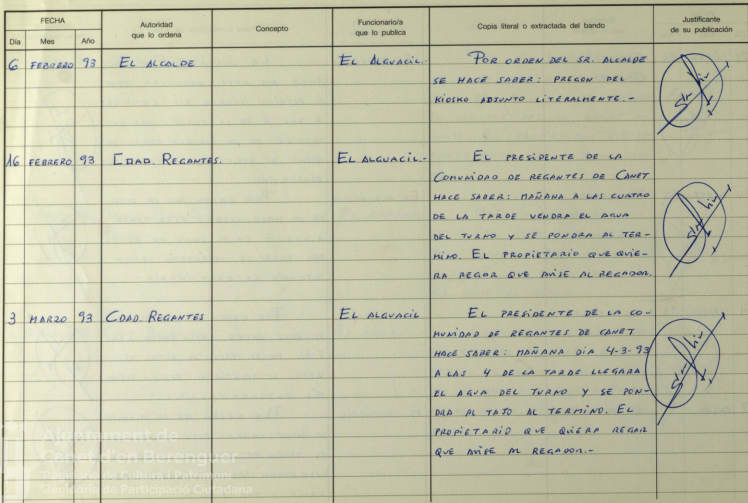 FECHA
Día Mes Año
Autoridad
que lo ordena
Concepto
Funcionario/a
que lo publica
Copia literal o extractada del bando
Justificante
de su publicación
6 FEBRERO 93 EL ALCALDE EL ALGUACIL.- POR ORDEN DEL SR. ALCALDE
SE HACE SABER: PREGON DEL
KIOSKO ADJUNTO LITERALMENTE.-
16 FEBRERO 93 CDAD. REGANTES. EL ALGUACIL.- EL PRESIDENTE DE LA
COMUNIDAD DE REGANTES DE CANET
HACE SABER: MAÑANA A LAS CUATRO
DE LA TARDE VENDRA EL AGUA
DEL TURNO Y SE PONDRA AL TER-
MINO. EL PROPIETARIO QUE QUIE-
RA REGAR QUE AVISE AL REGADOR.
3 MARZO 93 CDAD. REGANTES EL ALGUACIL EL PRESIDENTE DE LA CO-
MUNIDAD DE REGANTES DE CANET
HACE SABER: MAÑANA DIA 4-3-93
A LAS 4 DE LA TARDE LLEGARA
EL AGUA DEL TURNO Y SE PON-
DRA AL TAJO AL TERMINO. EL
PROPIETARIO QUE QUIERA REGAR
QUE AVISE AL REGADOR.-
Ajuntament de
Canet d'en Berenguer
Regidoria de Cultura i Patrimoni
Regidoria de Participació Ciutadana